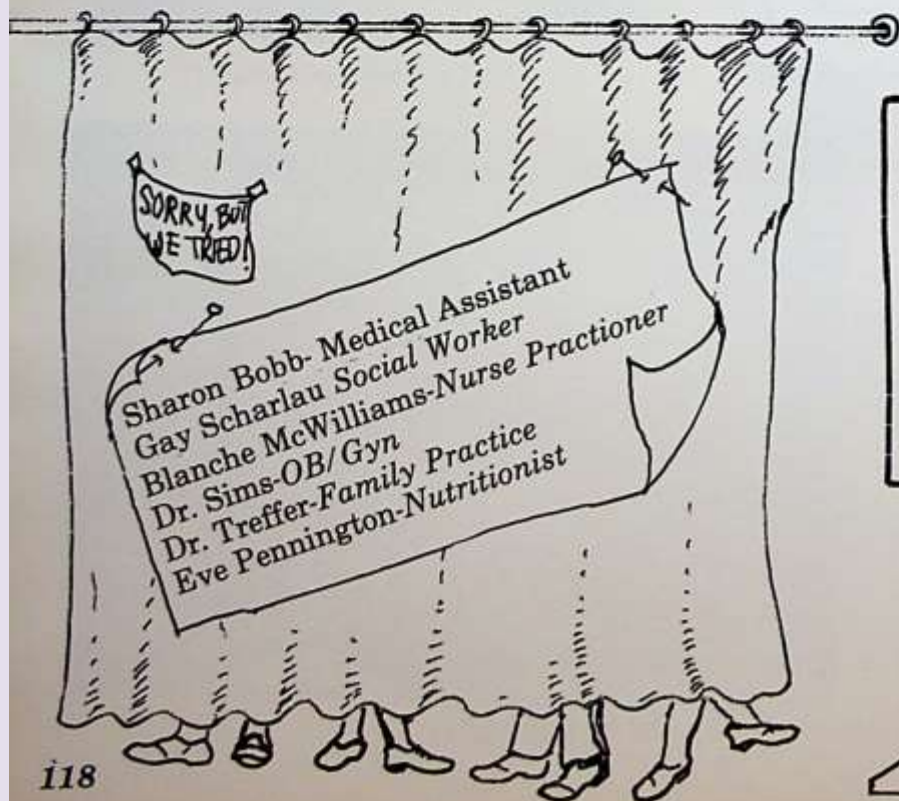 SORRY, BUT
WE TRIED!
Sharon Bobb- Medical Assistant
Gay Scharlau Social Worker
Blanche McWilliams-Nurse Practioner
Dr. Sims-OB/Gyn
Dr. Treffer-Family Practice
Eve Pennington-Nutritionist
118